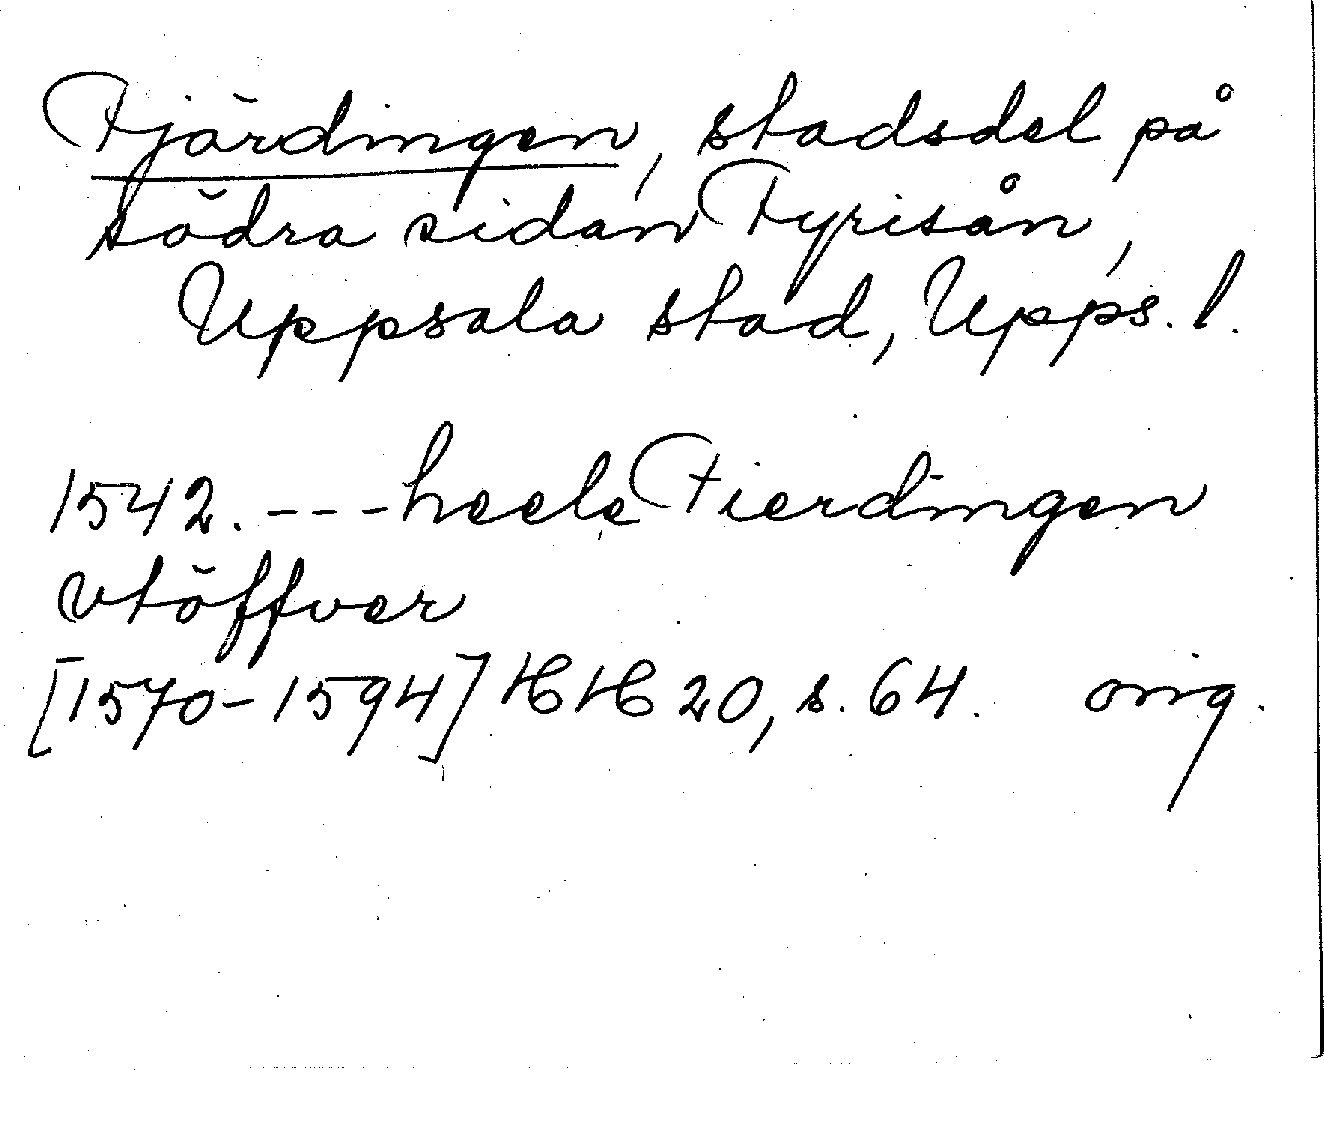 Fjärdingen, stadsdel på
södra sidan Fyrisån,
Uppsala stad, Upps. l.
1542. --- heele Fierdingen
vtöffver
[1570-1594] HH 20, s. 64. orig.